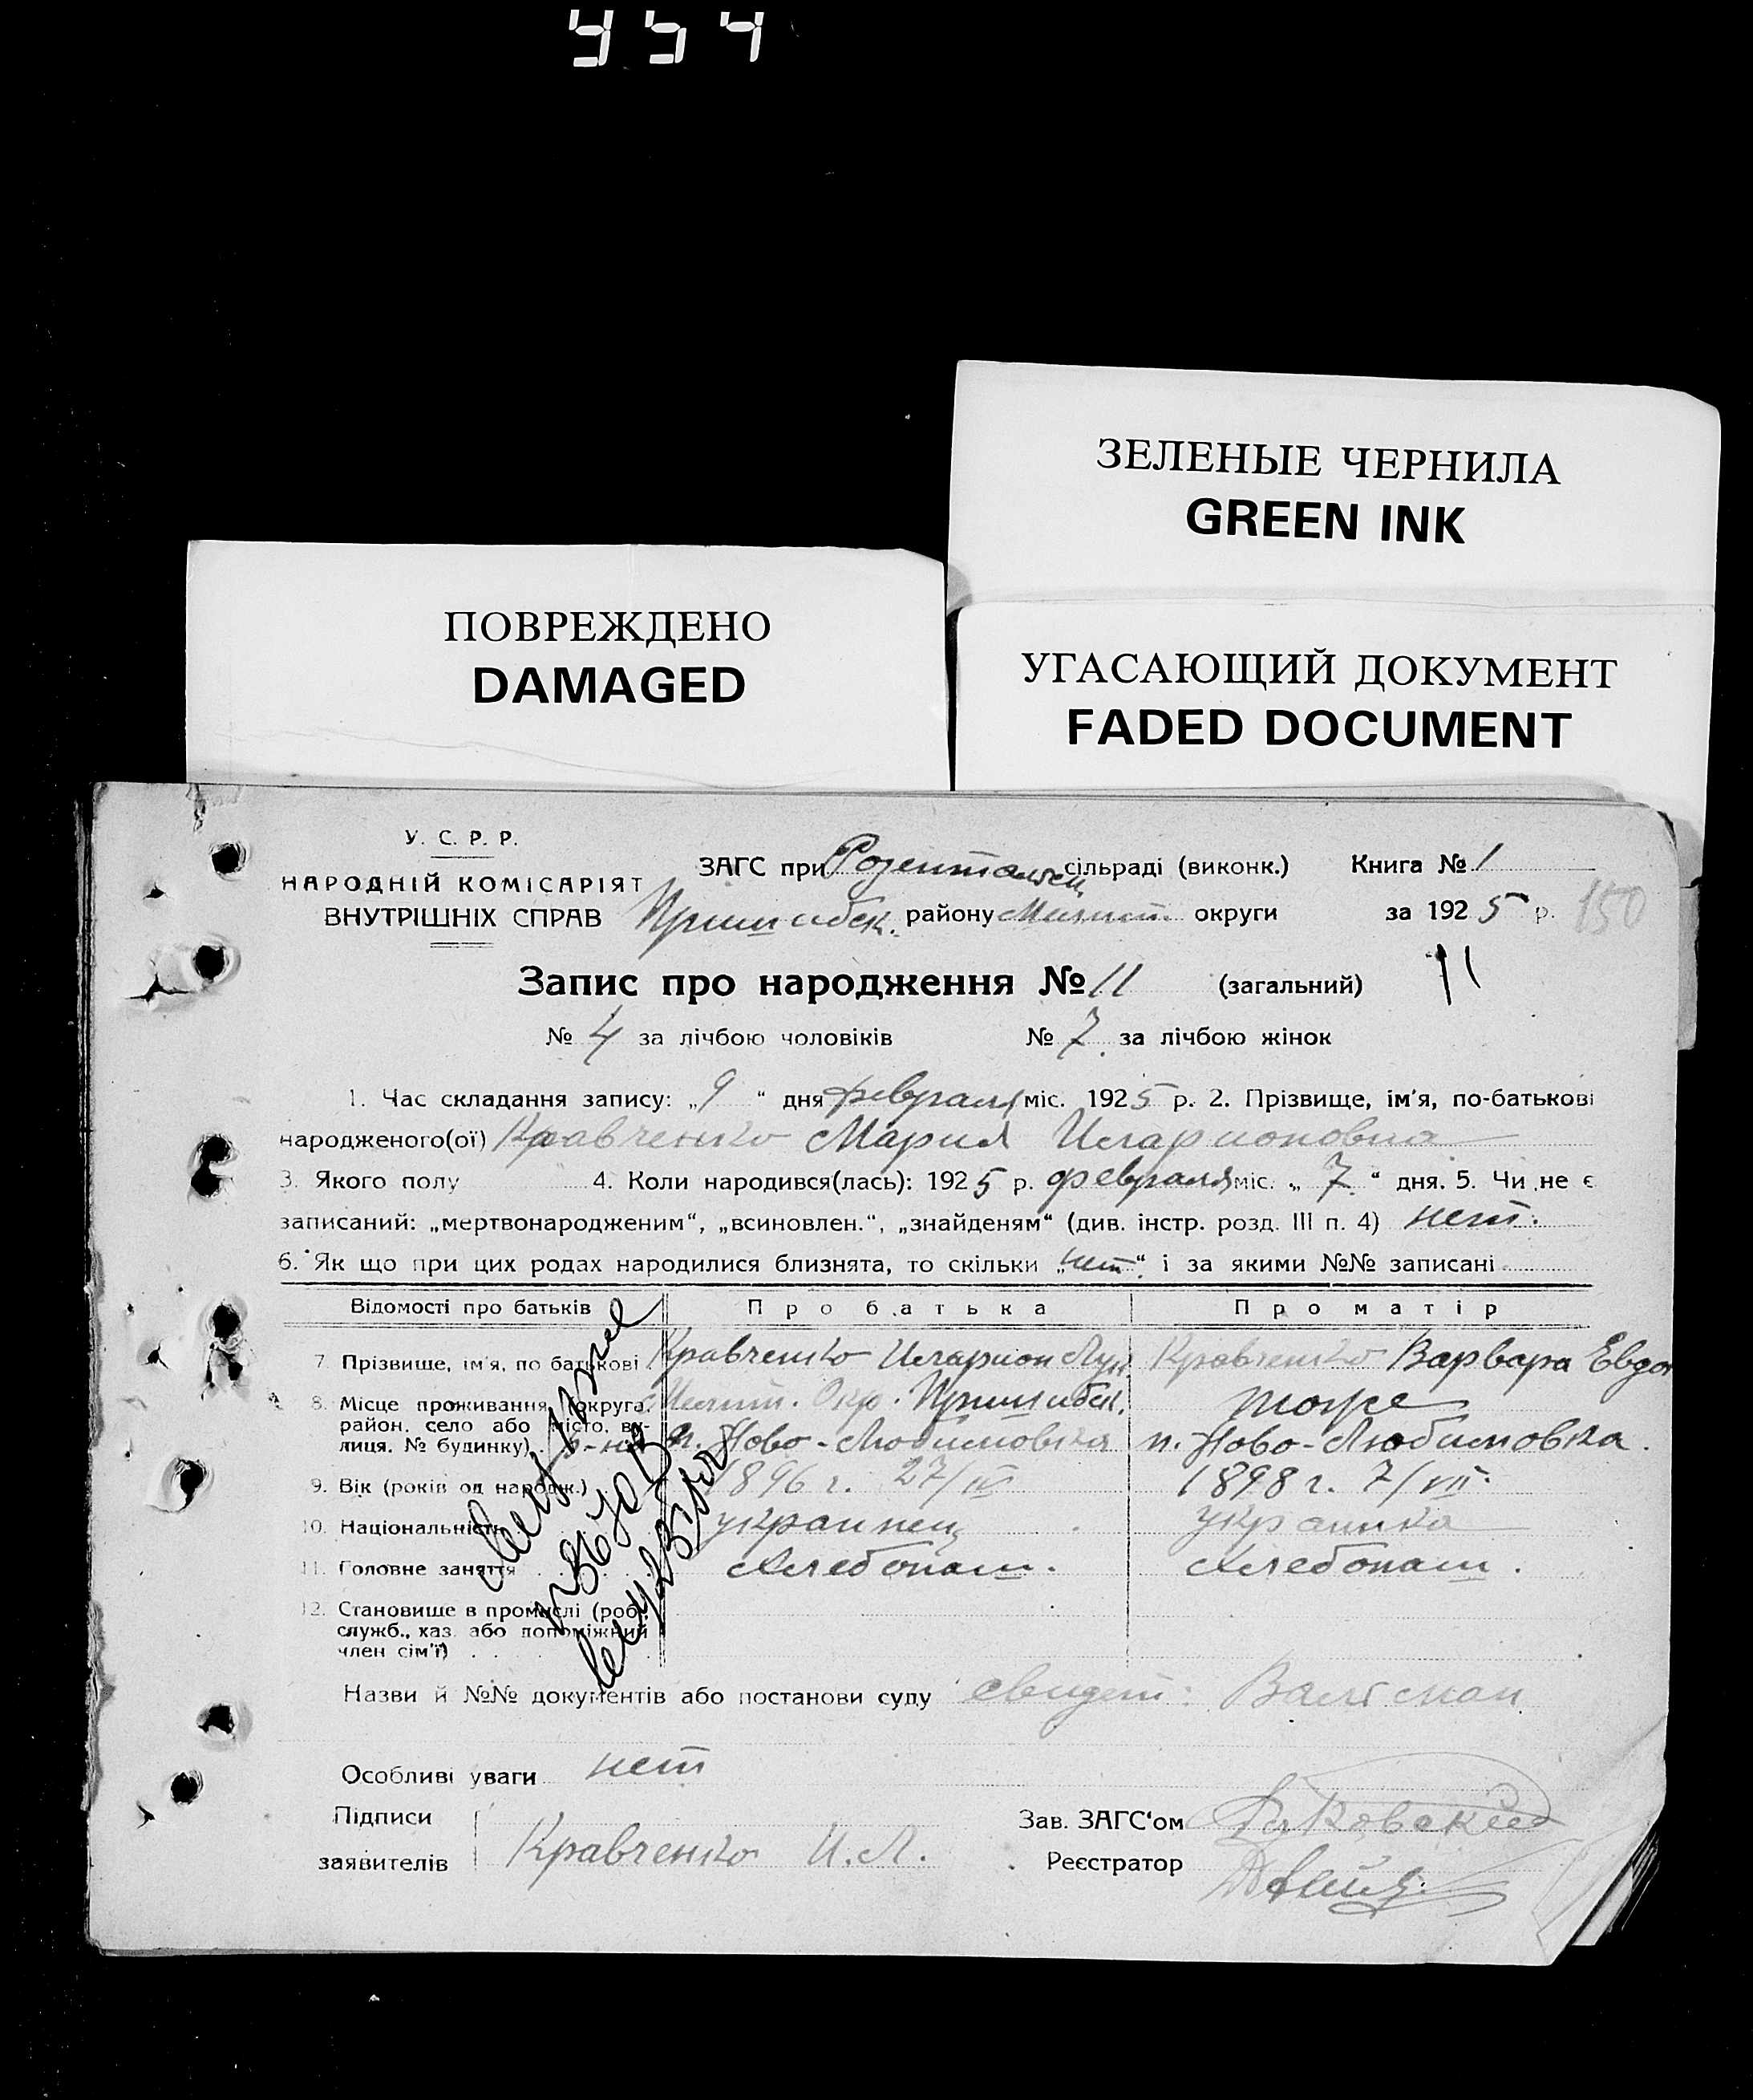 ЗЕЛЕНЫЕ ЧЕРНИЛА
GREEN INK
ПОВРЕЖДЕНО
DAMAGED
УГАСАЮЩИЙ ДОКУМЕНТ
FADED DOCUMENT
У. С. Р. Р.
НАРОДНІЙ КОМІСАРІЯТ
ВНУТРІШНІХ СПРАВ
ЗАГС при Розентальск сільраді (виконк.) Книга № 1
Пришибск. району Мелит. округи за 1925 р. 150
Запис про народження № 11 (загальний) 11
№ 4 за лічбою чоловіків № 7 за лічбою жінок
1. Час складання запису: „9“ дня февраля міс. 1925 р. 2. Прізвище, ім'я, по-батькові
народженого(ої) Кравченко Мария Иларионовна
3. Якого полу 4. Коли народився(лась): 1925 р. февраля міс. „7“ дня. 5. Чи не є
записаний: „мертвонародженим“, „всиновлен.“, „знайденям“ (див. інстр. розд. III п. 4) нет.
6. Як що при цих родах народилися близнята, то скільки „нет“ і за якими №№ записані
Відомості про батьків Про батька Про матір
7. Прізвище, ім'я, по батькові Кравченко Иларион Лук Кравченко Варвара Евдок
8. Місце проживання (округа, Мелит. Окр. Пришибск. тоже
район, село або місто, ву-
лиця, № будинку) р-на п. Ново-Любимовка п. Ново-Любимовка.
9. Вік (років од народж.) 1896 г. 27/IX 1898 г. 7/VII.
10. Національність украинец украинка
11. Головне заняття Хлебопаш. Хлебопаш.
12. Становище в промислі (роб.,
служб., хаз. або допоміжний
член сім'ї)
Назви й №№ документів або постанови суду свидет: Вальтман
Особливі уваги нет
Підписи
заявителів Кравченко И. Л.
Зав. ЗАГС'ом
Реєстратор